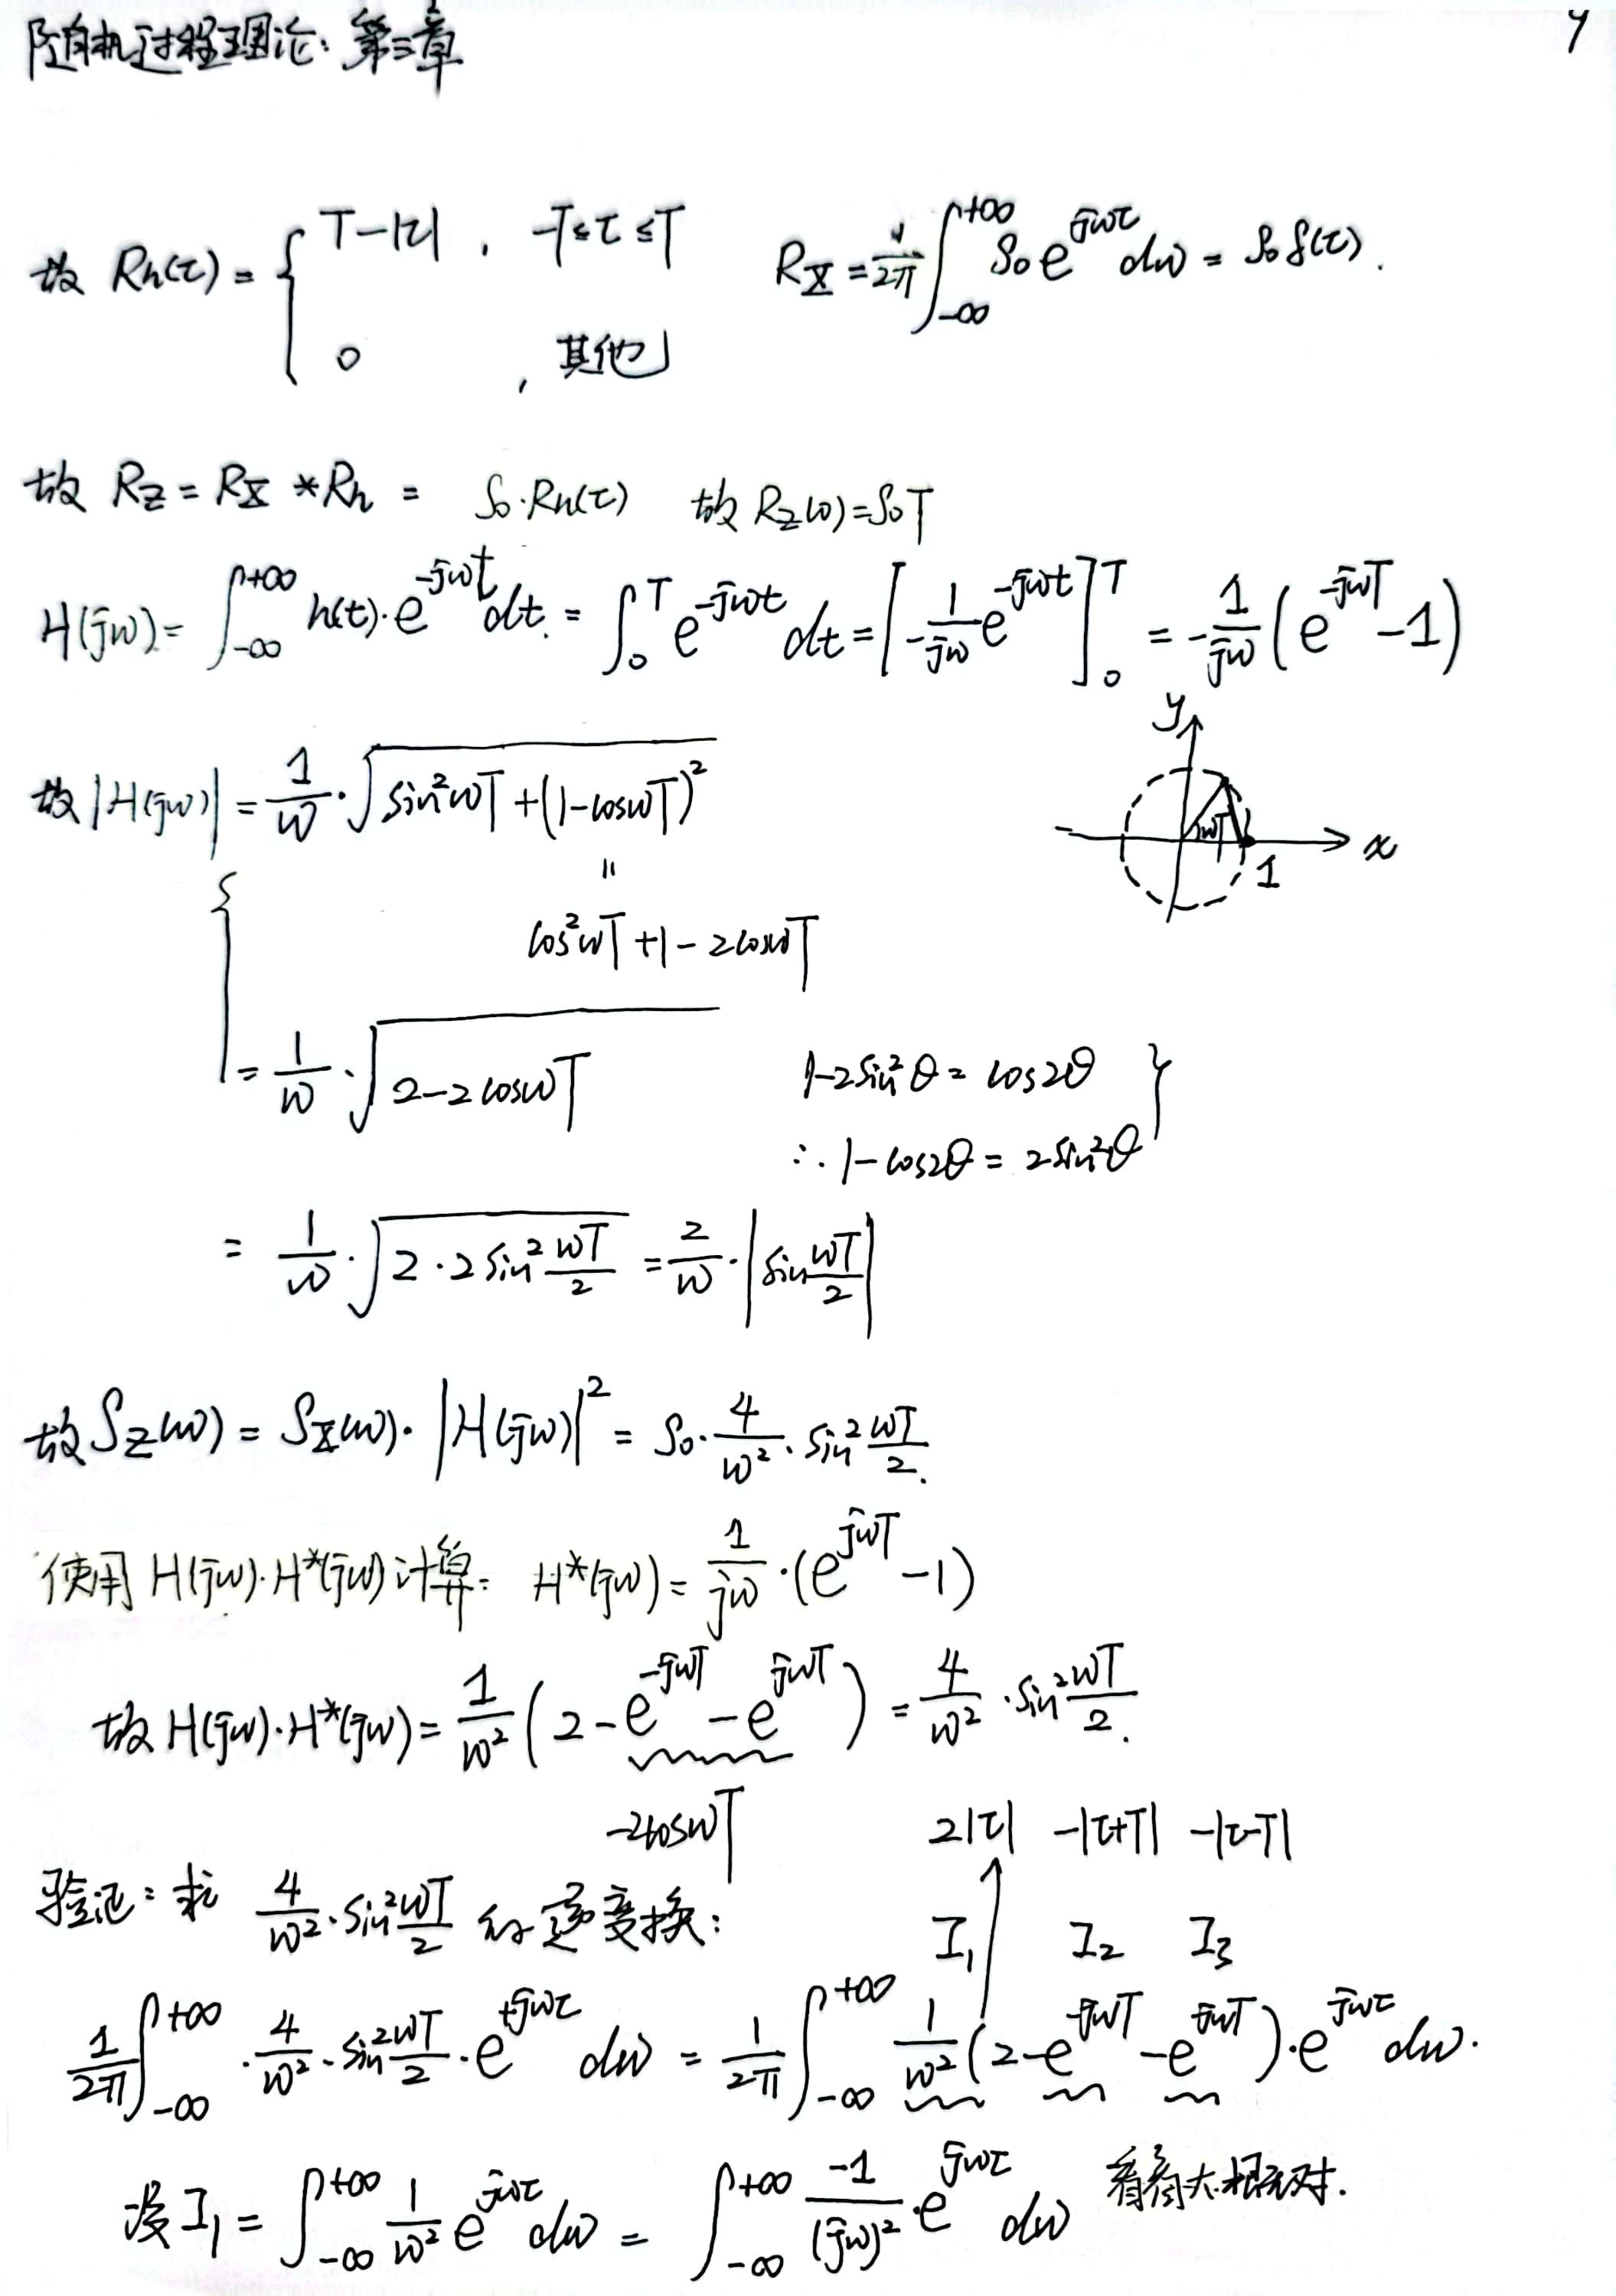 随机过程理论：第三章 9
故 Rh(τ) = { T-|τ| , -T≤τ≤T R_X = 1/2π ∫_{-∞}^{+∞} S₀ e^{jωτ} dω = S₀ δ(τ).
0 , 其他
故 R_Z = R_X * R_h = S₀·Rh(τ) 故 R_Z(0) = S₀T
H(jω) = ∫_{-∞}^{+∞} h(t)·e^{-jωt} dt = ∫_0^T e^{-jωt} dt = [-1/jω e^{-jωt}]_0^T = -1/jω (e^{-jωT} - 1)
故 |H(jω)| = 1/ω · √(sin²ωT + (1-cosωT)²)
y
ωT
1
x
=
cos²ωT + 1 - 2cosωT
= 1/ω · √(2-2cosωT) 1-2sin²θ = cos2θ }
∴ 1-cos2θ = 2sin²θ
= 1/ω · √(2·2sin² ωT/2) = 2/ω · |sin ωT/2|
故 S_Z(ω) = S_X(ω)· |H(jω)|² = S₀· 4/ω² · sin² ωT/2.
使用 H(jω)·H*(jω) 计算： H*(jω) = 1/jω ·(e^{jωT} - 1)
故 H(jω)·H*(jω) = 1/ω² (2 - e^{-jωT} - e^{jωT}) = 4/ω² · sin² ωT/2.
-2cosωT 2|τ| -|τ+T| -|τ-T|
验证：求 4/ω² · sin² ωT/2 的逆变换：
I₁ I₂ I₃
1/2π ∫_{-∞}^{+∞} · 4/ω² · sin² ωT/2 · e^{+jωτ} dω = 1/2π ∫_{-∞}^{+∞} 1/ω² (2 - e^{-jωT} - e^{jωT})·e^{jωτ} dω.
设 I₁ = ∫_{-∞}^{+∞} 1/ω² e^{jωτ} dω = ∫_{-∞}^{+∞} -1/(jω)² · e^{jωτ} dω 看着大概对.